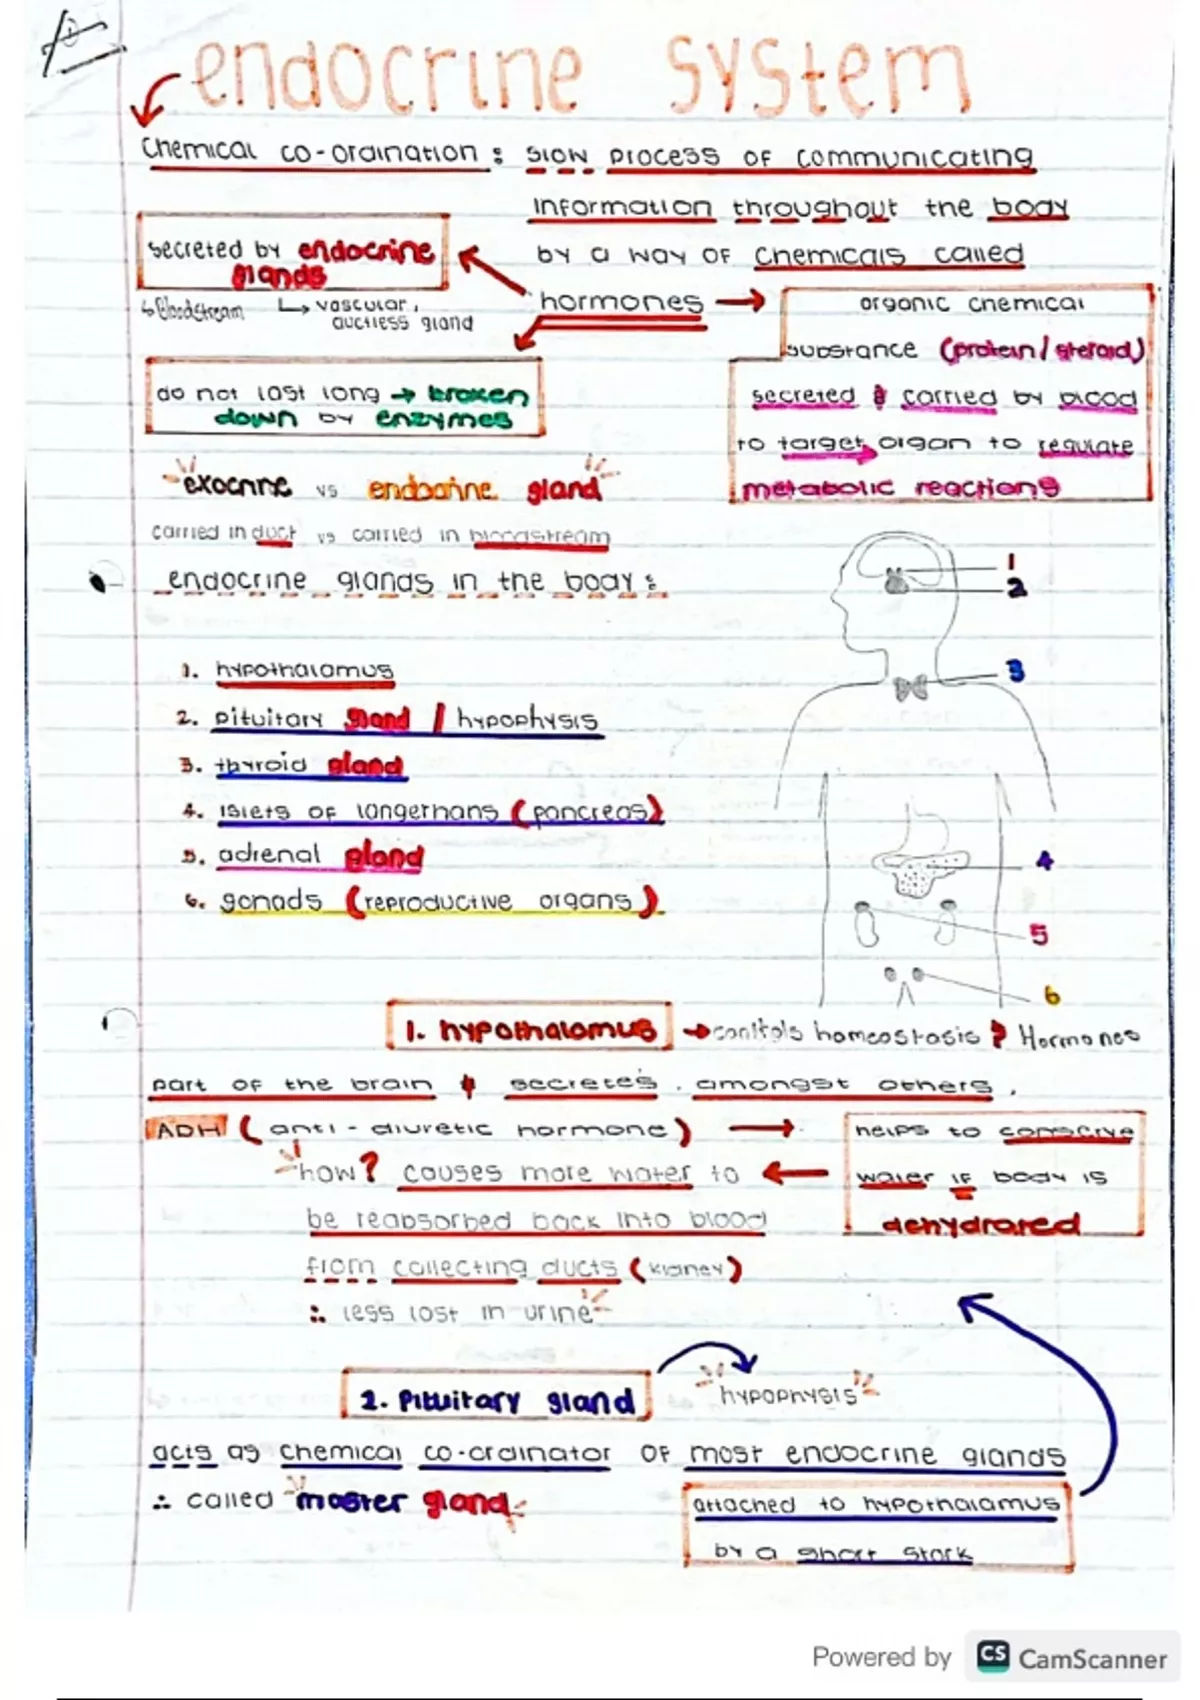 endocrine system
Chemical co-ordination : slow process of communicating
information throughout the body
by a way of chemicals called
hormones
secreted by endocrine
glands
↳ Bloodstream ↳ vascular,
ductless gland
organic chemical
substance (protein/steroid)
secreted & carried by blood
to target organ to regulate
metabolic reactions
do not last long → broken
down by enzymes
exocrine vs endocrine gland
carried in duct vs carried in bloodstream
endocrine glands in the body :
1
2
3
4
5
6
1. hypothalamus
2. pituitary gland / hypophysis
3. thyroid gland
4. islets of langerhans (pancreas)
5. adrenal gland
6. gonads (reproductive organs)
1. hypothalamus → contitols homeostasis & Hormones
part of the brain & secretes, amongst others,
ADH (anti-diuretic hormone) →
helps to conserve
water if body is
dehydrated
how? causes more water to
be reabsorbed back into blood
from collecting ducts (kidney)
∴ less lost in urine
2. Pituitary gland
hypophysis
acts as chemical co-ordinator of most endocrine glands
∴ called master gland
attached to hypothalamus
by a short stark
Powered by CS CamScanner